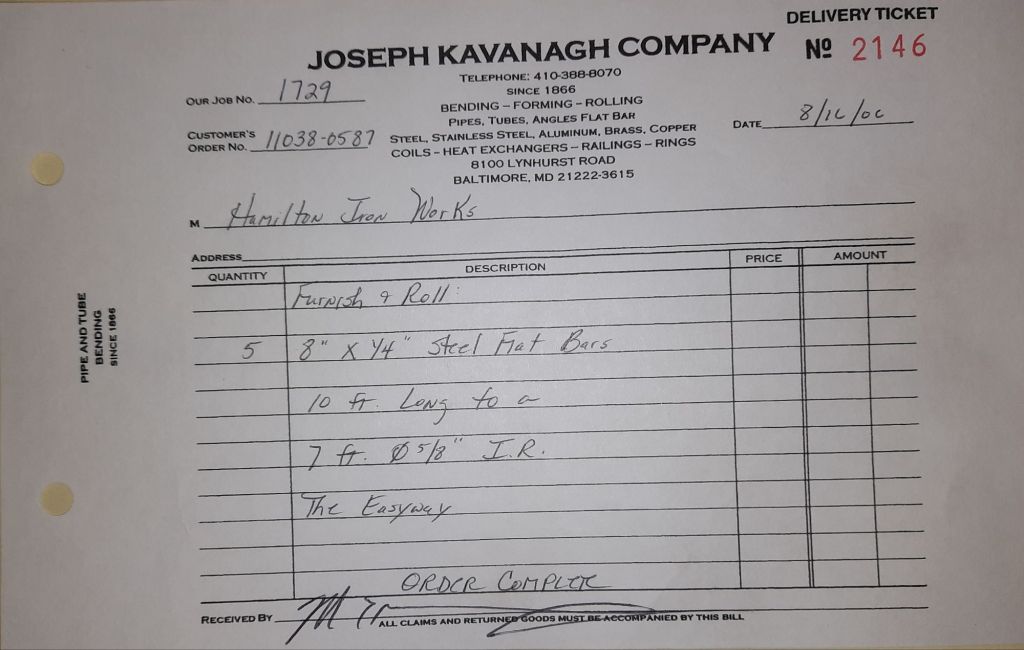 DELIVERY TICKET
JOSEPH KAVANAGH COMPANY
Nº 2146
TELEPHONE: 410-388-8070
SINCE 1866
BENDING – FORMING – ROLLING
PIPES, TUBES, ANGLES FLAT BAR
STEEL, STAINLESS STEEL, ALUMINUM, BRASS, COPPER
COILS – HEAT EXCHANGERS – RAILINGS – RINGS
8100 LYNHURST ROAD
BALTIMORE, MD 21222-3615
OUR JOB NO. 1729
CUSTOMER'S
ORDER NO. 11038-0587
DATE
M Hamilton Iron Works
ADDRESS
QUANTITY DESCRIPTION PRICE AMOUNT
Furnish & Roll:
5 8" X 1/4" Steel Flat Bars
10 ft. Long to a
7 ft. Ø 5/8" I.R.
The Easyway
ORDER COMPLETE
RECEIVED BY
ALL CLAIMS AND RETURNED GOODS MUST BE ACCOMPANIED BY THIS BILL
PIPE AND TUBE
BENDING
SINCE 1866